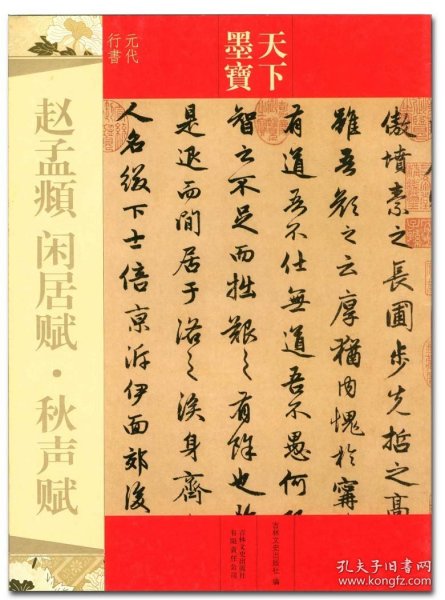 天下
墨寶
元代
行書
赵孟頫 闲居赋·秋声赋
傲墳素之長圃步先哲之高
雖吾顏之云厚猶內愧於甯
有道吾不仕無道吾不愚何
智之不足而拙艱之有餘也於
是退而閒居于洛之涘身齊
人名綴下士倍京泝伊面郊後
吉林文史出版社 编
吉林文史出版社
有限责任公司
孔夫子旧书网